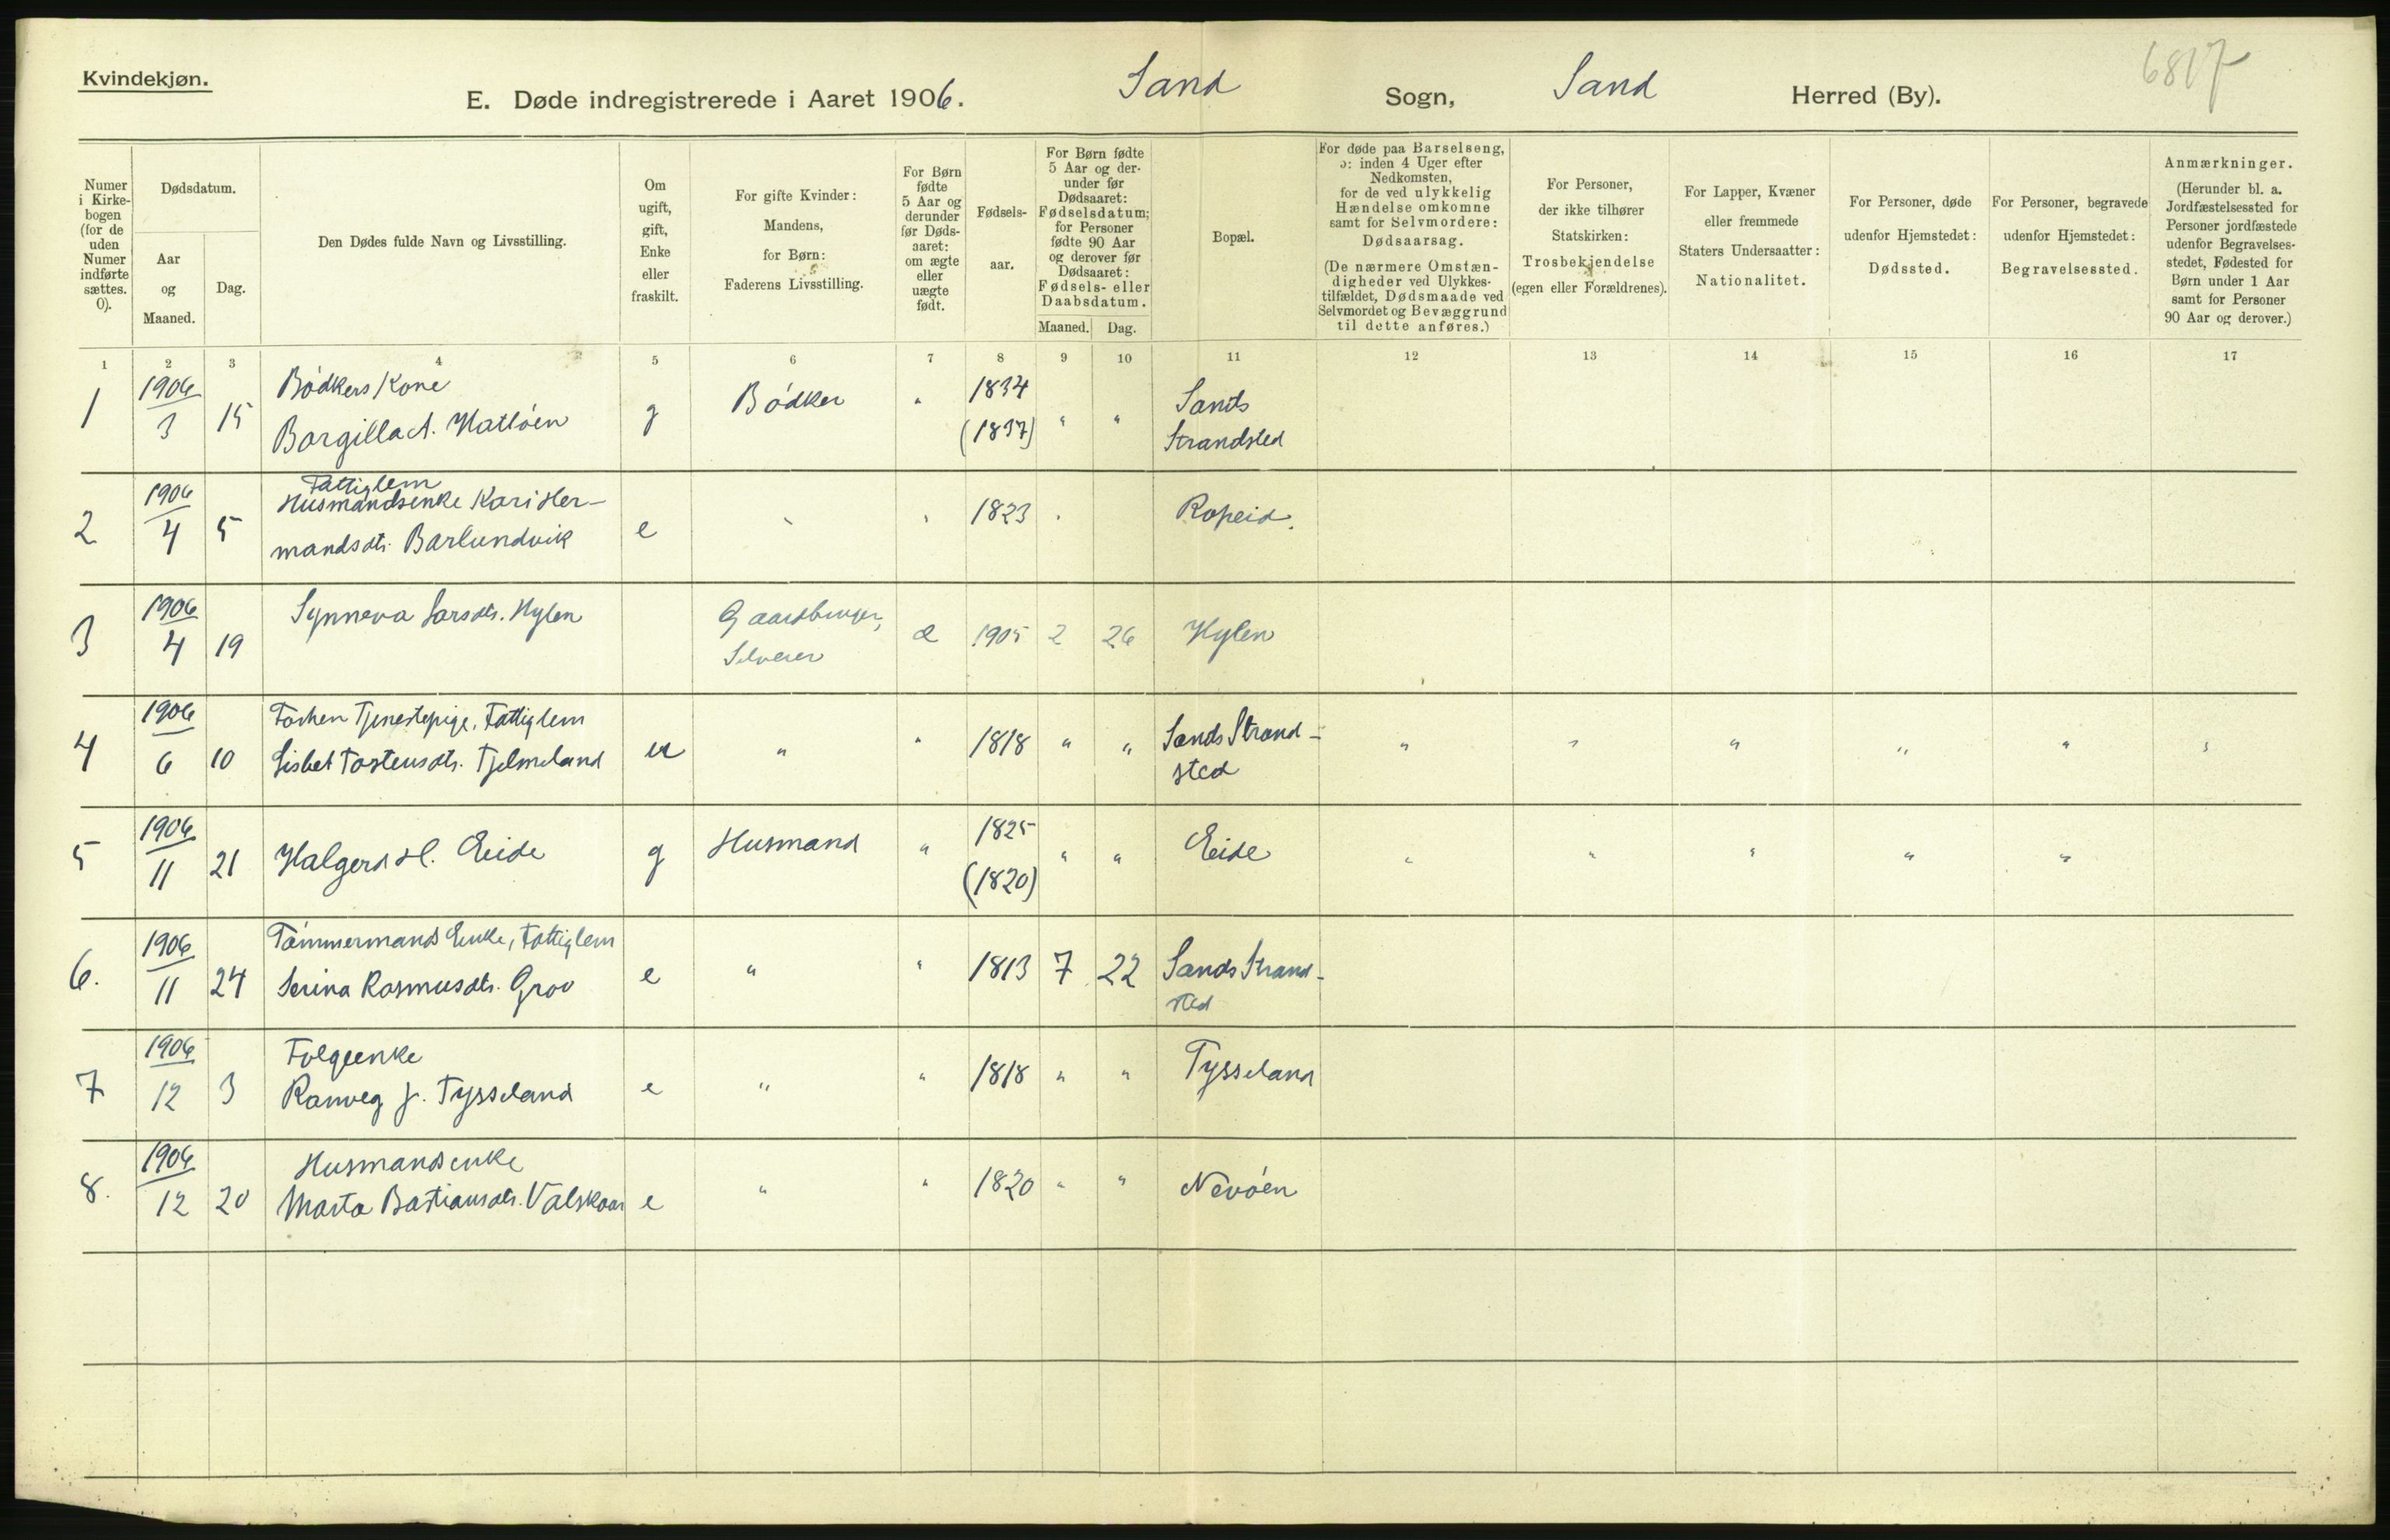 Kvindekjøn.
E. Døde indregistrerede i Aaret 1906. Sand Sogn, Sand Herred (By).
6817
Numer i Kirkebogen (for de uden Numer indførte sættes. 0).
Dødsdatum.
Aar og Maaned.
Dag.
Den Dødes fulde Navn og Livsstilling.
Om ugift, gift, Enke eller fraskilt.
For gifte Kvinder: Mandens, for Børn: Faderens Livsstilling.
For Børn fødte 5 Aar og derunder før Dødsaaret: om ægte eller uægte født.
Fødselsaar.
For Børn fødte 5 Aar og derunder før Dødsaaret: Fødselsdatum; for Personer fødte 90 Aar og derover før Dødsaaret: Fødsels- eller Daabsdatum.
Maaned. Dag.
Bopæl.
For døde paa Barselseng, ɔ: inden 4 Uger efter Nedkomsten, for de ved ulykkelig Hændelse omkomne samt for Selvmordere: Dødsaarsag.
(De nærmere Omstændigheder ved Ulykkestilfældet, Dødsmaade ved Selvmordet og Bevæggrund til dette anføres.)
For Personer, der ikke tilhører Statskirken: Trosbekjendelse (egen eller Forældrenes).
For Lapper, Kvæner eller fremmede Staters Undersaatter: Nationalitet.
For Personer, døde udenfor Hjemstedet: Dødssted.
For Personer, begravede udenfor Hjemstedet: Begravelsessted.
Anmærkninger.
(Herunder bl. a. Jordfæstelsessted for Personer jordfæstede udenfor Begravelsesstedet, Fødested for Børn under 1 Aar samt for Personer 90 Aar og derover.)
1 2 3 4 5 6 7 8 9 10 11 12 13 14 15 16 17
1 1906 3 15 Bödkers Kone
Borgilla A. Hatlöen g Bödker " 1834 (1837) " " Sands Strandsted
2 1906 4 5 Fattiglem
Husmandsenke Kari Her-
mandsdtr. Barlundvik e " " 1823 " Ropeid.
3 1906 4 19 Synneva Larsdtr. Hylen Gaardbruger, Selveier æ 1905 2 26 Hylen
4 1906 6 10 Forhen Tjenestepige, Fattiglem
Lisbet Tostensdtr. Tjelmeland u " " 1818 " " Sands Strand-
sted " " " " " "
5 1906 11 21 Halgerd H. Eide g Husmand " 1825 (1820) " " Eide " " " " "
6. 1906 11 24 Tömmermands Enke, Fattiglem
Serina Rasmusdtr. Grov e " " 1813 7 22 Sands Strand-
sted
7 1906 12 3 Folgeenke
Ranveg J. Tysseland e " " 1818 " " Tysseland
8. 1906 12 20 Husmandsenke
Marta Bastiansdtr. Valskaar e " " 1820 " " Nevöen